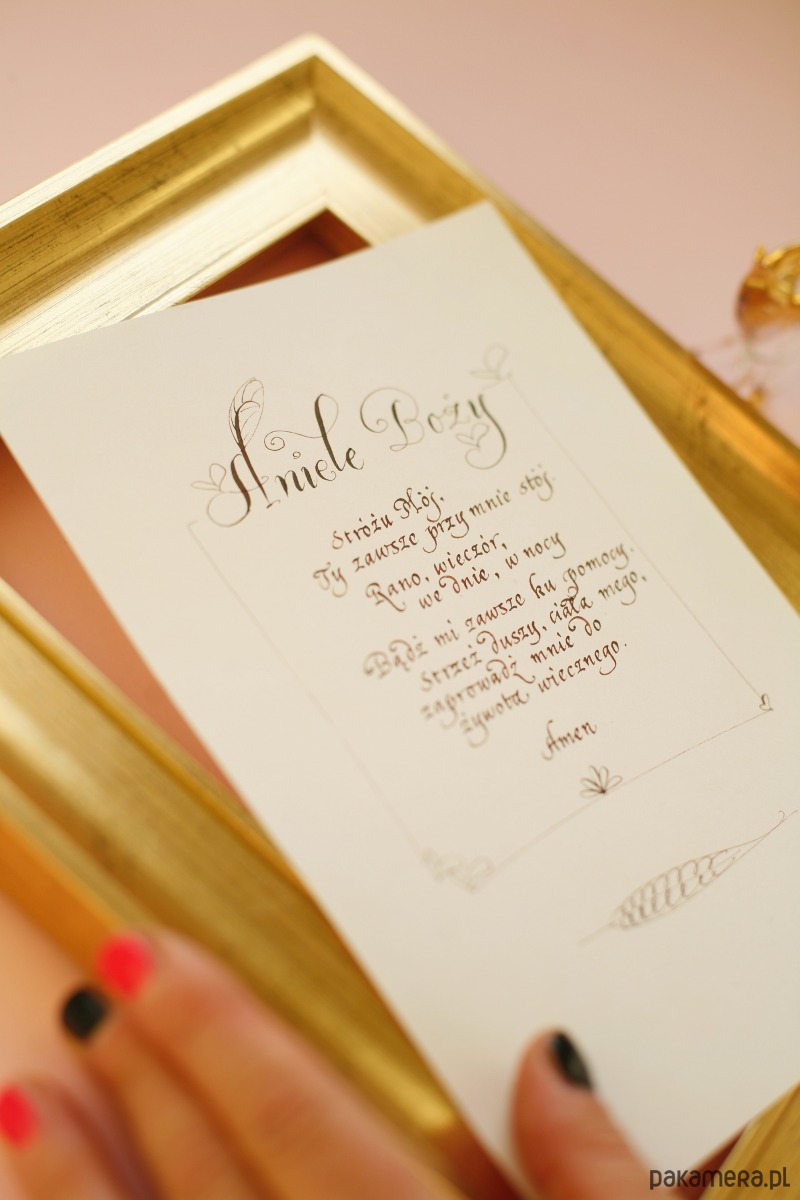 Aniele Boży
Stróżu Mój,
Ty zawsze przy mnie stój.
Rano, wieczór,
we dnie, w nocy
Bądź mi zawsze ku pomocy.
Strzeż duszy, ciała mego,
zaprowadź mnie do
żywota wiecznego.
Amen
pakamera.pl